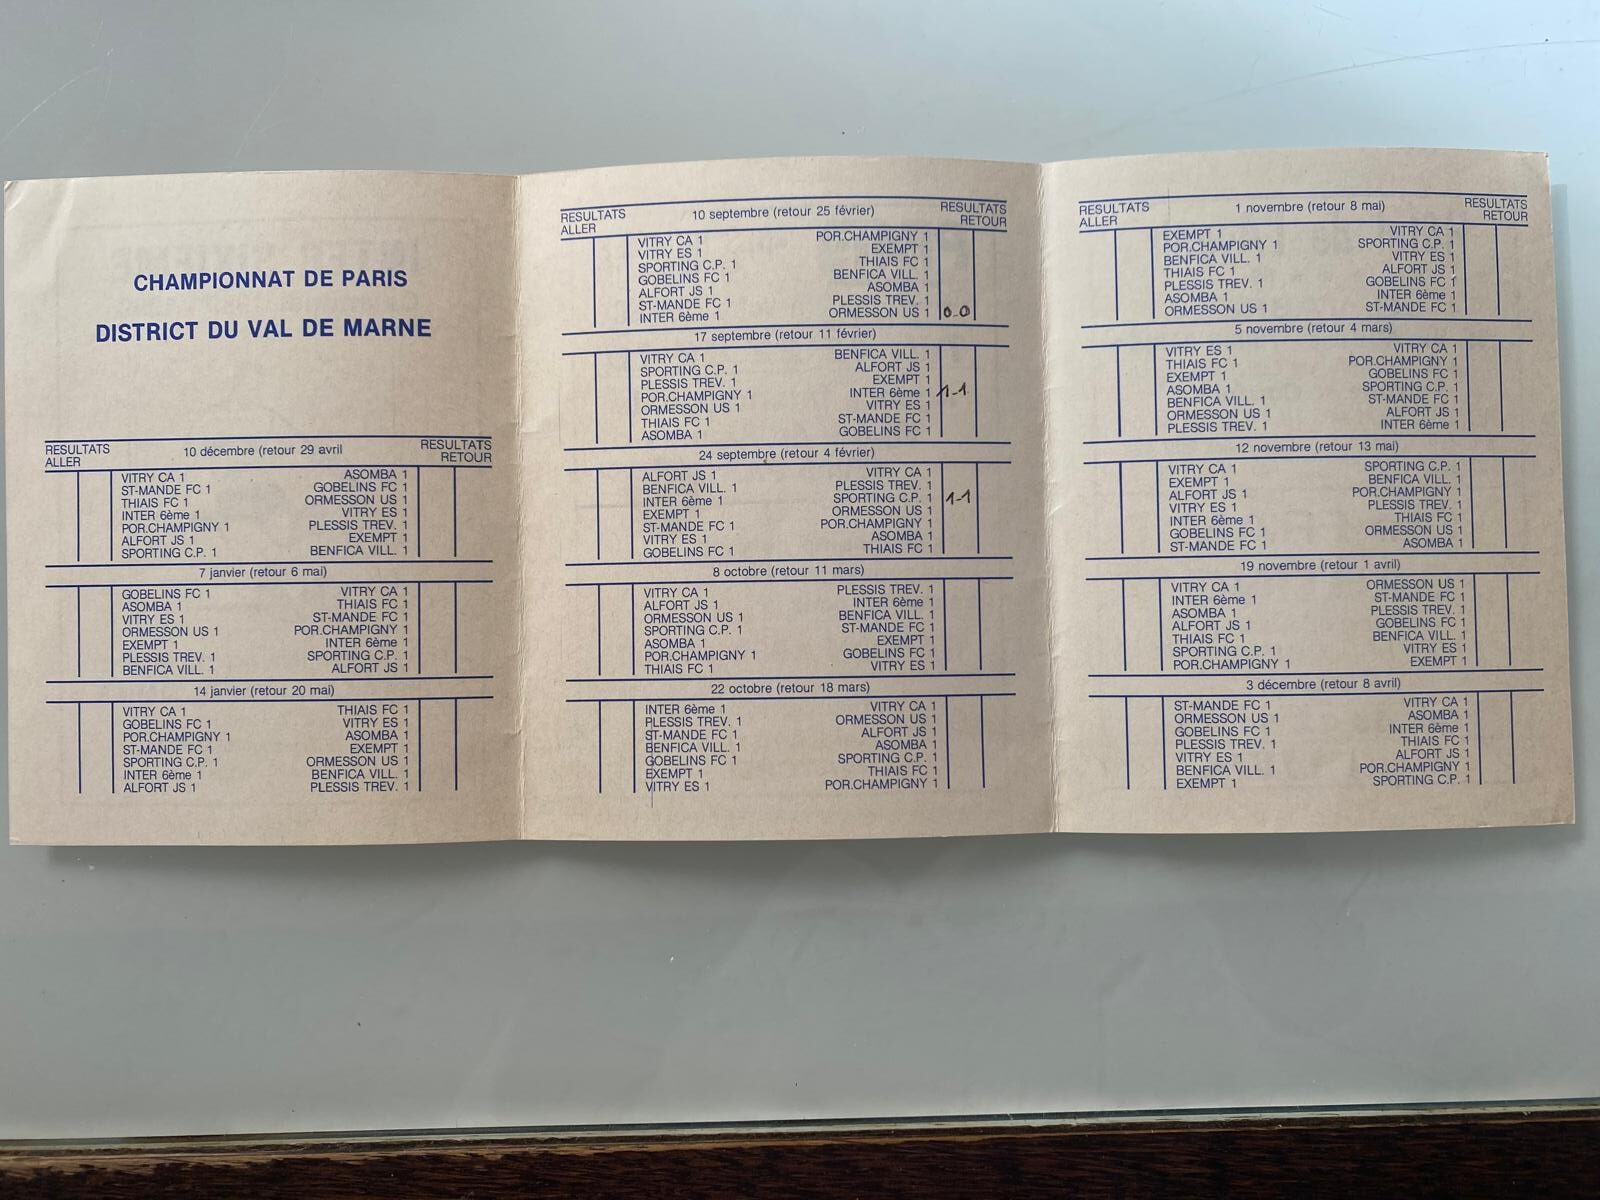 CHAMPIONNAT DE PARIS
DISTRICT DU VAL DE MARNE
RESULTATS ALLER 10 décembre (retour 29 avril RESULTATS RETOUR
VITRY CA 1 ASOMBA 1
ST-MANDE FC 1 GOBELINS FC 1
THIAIS FC 1 ORMESSON US 1
INTER 6ème 1 VITRY ES 1
POR.CHAMPIGNY 1 PLESSIS TREV. 1
ALFORT JS 1 EXEMPT 1
SPORTING C.P. 1 BENFICA VILL. 1
7 janvier (retour 6 mai)
GOBELINS FC 1 VITRY CA 1
ASOMBA 1 THIAIS FC 1
VITRY ES 1 ST-MANDE FC 1
ORMESSON US 1 POR.CHAMPIGNY 1
EXEMPT 1 INTER 6ème 1
PLESSIS TREV. 1 SPORTING C.P. 1
BENFICA VILL. 1 ALFORT JS 1
14 janvier (retour 20 mai)
VITRY CA 1 THIAIS FC 1
GOBELINS FC 1 VITRY ES 1
POR.CHAMPIGNY 1 ASOMBA 1
ST-MANDE FC 1 EXEMPT 1
SPORTING C.P. 1 ORMESSON US 1
INTER 6ème 1 BENFICA VILL. 1
ALFORT JS 1 PLESSIS TREV. 1
RESULTATS ALLER 10 septembre (retour 25 février) RESULTATS RETOUR
VITRY CA 1 POR.CHAMPIGNY 1
VITRY ES 1 EXEMPT 1
SPORTING C.P. 1 THIAIS FC 1
GOBELINS FC 1 BENFICA VILL. 1
ALFORT JS 1 ASOMBA 1
ST-MANDE FC 1 PLESSIS TREV. 1
INTER 6ème 1 ORMESSON US 1 0-0
17 septembre (retour 11 février)
VITRY CA 1 BENFICA VILL. 1
SPORTING C.P. 1 ALFORT JS 1
PLESSIS TREV. 1 EXEMPT 1
POR.CHAMPIGNY 1 INTER 6ème 1 1-1
ORMESSON US 1 VITRY ES 1
THIAIS FC 1 ST-MANDE FC 1
ASOMBA 1 GOBELINS FC 1
24 septembre (retour 4 février)
ALFORT JS 1 VITRY CA 1
BENFICA VILL. 1 PLESSIS TREV. 1
INTER 6ème 1 SPORTING C.P. 1 1-1
EXEMPT 1 ORMESSON US 1
ST-MANDE FC 1 POR.CHAMPIGNY 1
VITRY ES 1 ASOMBA 1
GOBELINS FC 1 THIAIS FC 1
8 octobre (retour 11 mars)
VITRY CA 1 PLESSIS TREV. 1
ALFORT JS 1 INTER 6ème 1
ORMESSON US 1 BENFICA VILL. 1
SPORTING C.P. 1 ST-MANDE FC 1
ASOMBA 1 EXEMPT 1
POR.CHAMPIGNY 1 GOBELINS FC 1
THIAIS FC 1 VITRY ES 1
22 octobre (retour 18 mars)
INTER 6ème 1 VITRY CA 1
PLESSIS TREV. 1 ORMESSON US 1
ST-MANDE FC 1 ALFORT JS 1
BENFICA VILL. 1 ASOMBA 1
GOBELINS FC 1 SPORTING C.P. 1
EXEMPT 1 THIAIS FC 1
VITRY ES 1 POR.CHAMPIGNY 1
RESULTATS ALLER 1 novembre (retour 8 mai) RESULTATS RETOUR
EXEMPT 1 VITRY CA 1
POR.CHAMPIGNY 1 SPORTING C.P. 1
BENFICA VILL. 1 VITRY ES 1
THIAIS FC 1 ALFORT JS 1
PLESSIS TREV. 1 GOBELINS FC 1
ASOMBA 1 INTER 6ème 1
ORMESSON US 1 ST-MANDE FC 1
5 novembre (retour 4 mars)
VITRY ES 1 VITRY CA 1
THIAIS FC 1 POR.CHAMPIGNY 1
EXEMPT 1 GOBELINS FC 1
ASOMBA 1 SPORTING C.P. 1
BENFICA VILL. 1 ST-MANDE FC 1
ORMESSON US 1 ALFORT JS 1
PLESSIS TREV. 1 INTER 6ème 1
12 novembre (retour 13 mai)
VITRY CA 1 SPORTING C.P. 1
EXEMPT 1 BENFICA VILL. 1
ALFORT JS 1 POR.CHAMPIGNY 1
VITRY ES 1 PLESSIS TREV. 1
INTER 6ème 1 THIAIS FC 1
GOBELINS FC 1 ORMESSON US 1
ST-MANDE FC 1 ASOMBA 1
19 novembre (retour 1 avril)
VITRY CA 1 ORMESSON US 1
INTER 6ème 1 ST-MANDE FC 1
ASOMBA 1 PLESSIS TREV. 1
ALFORT JS 1 GOBELINS FC 1
THIAIS FC 1 BENFICA VILL. 1
SPORTING C.P. 1 VITRY ES 1
POR.CHAMPIGNY 1 EXEMPT 1
3 décembre (retour 8 avril)
ST-MANDE FC 1 VITRY CA 1
ORMESSON US 1 ASOMBA 1
GOBELINS FC 1 INTER 6ème 1
PLESSIS TREV. 1 THIAIS FC 1
VITRY ES 1 ALFORT JS 1
BENFICA VILL. 1 POR.CHAMPIGNY 1
EXEMPT 1 SPORTING C.P. 1